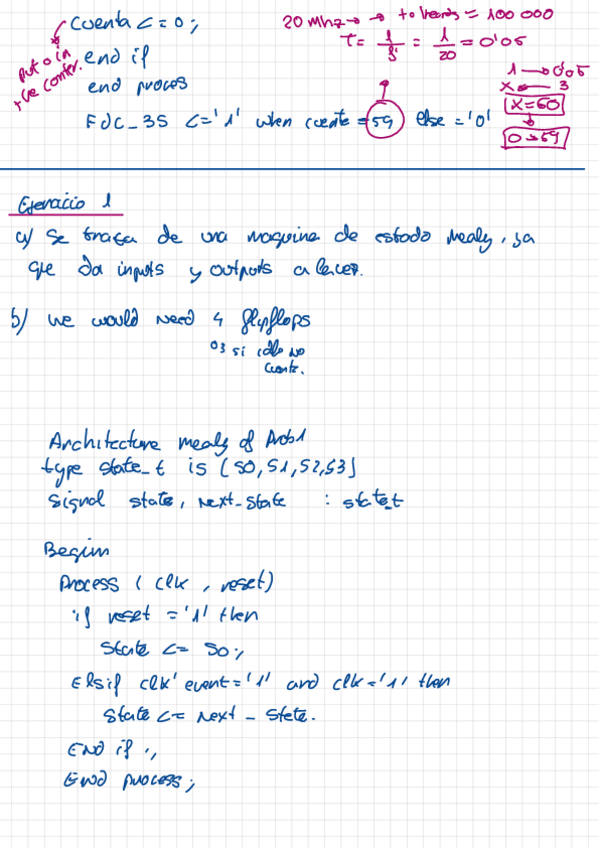 Cuenta <= 0;
20 Mhz → → to hercios = 100 000
put 0 in
+ve conter.
T = 1/f = 1/20 = 0'05
end if
end proces
1 → 0'05
x ← 3
x = 60
0 → 59
FdC_3S <= '1' when cuenta = 59 else = '0'
Ejercicio 1
a) Se trata de una maquina de estado Mealy, ya
que da inputs y outputs a la vez.
b) we would need 4 flipflops
o 3 si idle no
cuenta.
Architecture mealy of Prob1
type state_t is (S0, S1, S2, S3)
Signal state, next_state : state_t
Begin
Process ( clk , reset)
if reset = '1' then
State <= S0;
Elsif clk' event = '1' and clk = '1' then
State <= next_state.
End if ;
End process;